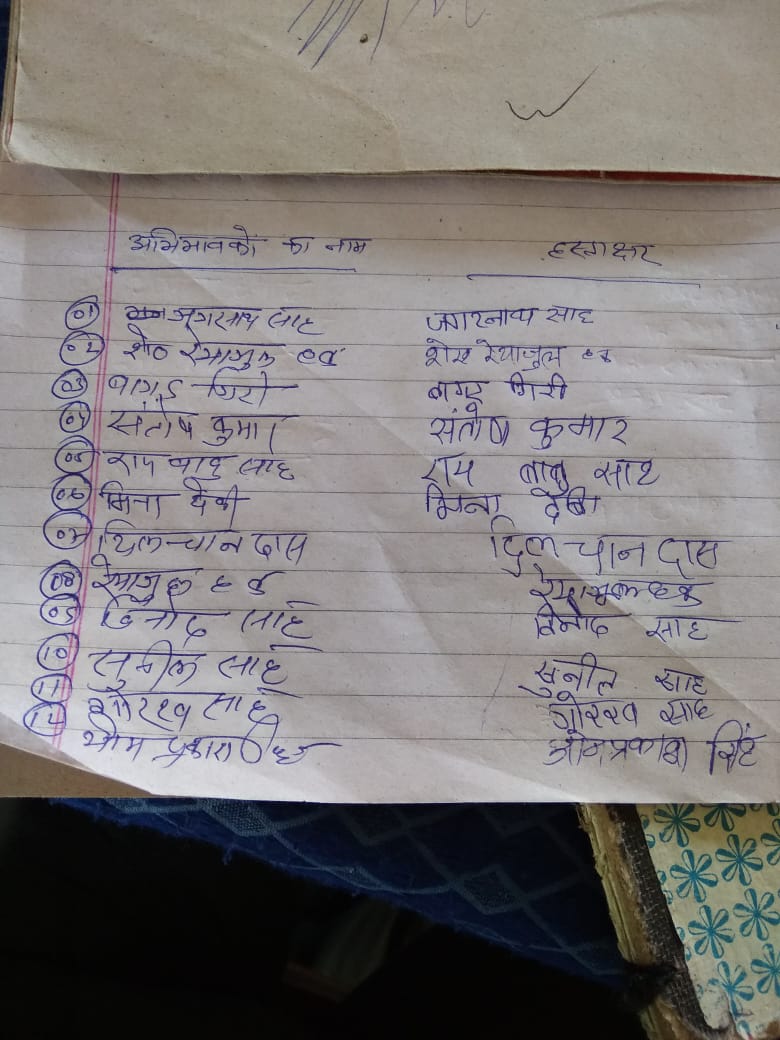 अभिभावकों का नाम हस्ताक्षर
01 जगरनाथ साह जगरनाथ साह
02 शेख रेयाजुल हक शेख रेयाजुल हक
03 बागड गिरी बागड गिरी
04 संतोष कुमार संतोष कुमार
05 राम बाबु साह राम बाबु साह
06 मिना देवी मिना देवी
07 दिलचान दास दिलचान दास
08 रेयाजुल हक रेयाजुल हक
09 विनोद साह विनोद साह
10 सुनील साह सुनील साह
11 गोरख साह गोरख साह
12 ओम प्रकाश सिंह ओमप्रकाश सिंह